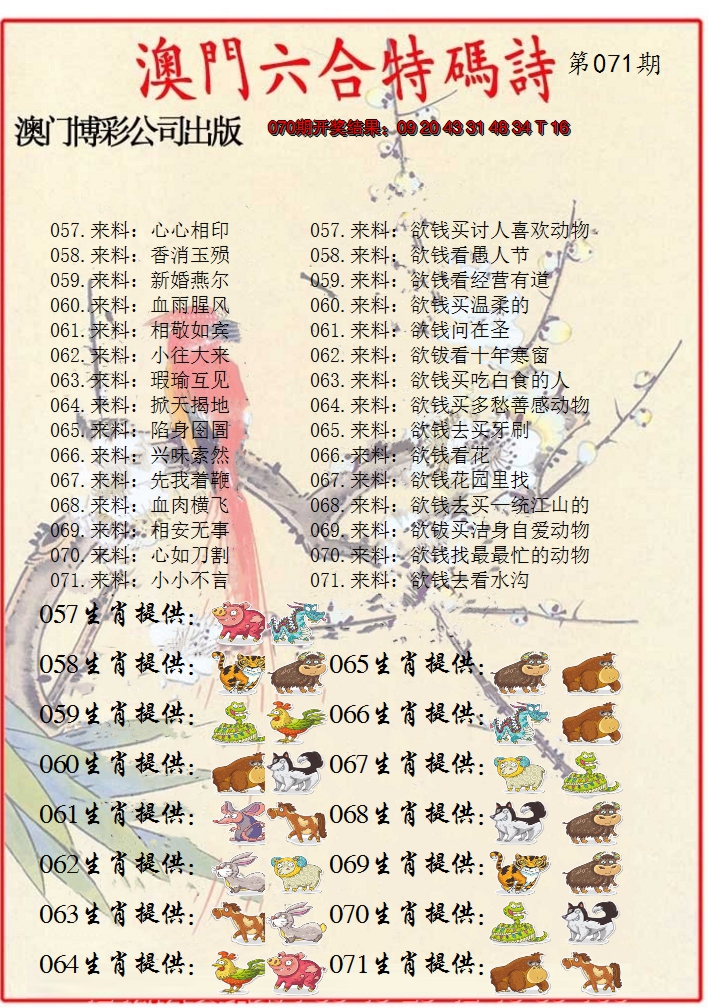 澳門六合特碼詩 第071期
澳门博彩公司出版 070期开奖结果：09 20 43 31 48 34 T 16
057.来料：心心相印 057.来料：欲钱买讨人喜欢动物
058.来料：香消玉殒 058.来料：欲钱看愚人节
059.来料：新婚燕尔 059.来料：欲钱看经营有道
060.来料：血雨腥风 060.来料：欲钱买温柔的
061.来料：相敬如宾 061.来料：欲钱问在圣
062.来料：小往大来 062.来料：欲钹看十年寒窗
063.来料：瑕瑜互见 063.来料：欲钱买吃白食的人
064.来料：掀天揭地 064.来料：欲钱买多愁善感动物
065.来料：陷身囹圄 065.来料：欲钱去买牙刷
066.来料：兴味索然 066.来料：欲钱看花
067.来料：先我着鞭 067.来料：欲钱花园里找
068.来料：血肉横飞 068.来料：欲钱去买一统江山的
069.来料：相安无事 069.来料：欲钹买洁身自爱动物
070.来料：心如刀割 070.来料：欲钱找最最忙的动物
071.来料：小小不言 071.来料：欲钱去看水沟
057生肖提供：
058生肖提供： 065生肖提供：
059生肖提供： 066生肖提供：
060生肖提供： 067生肖提供：
061生肖提供： 068生肖提供：
062生肖提供： 069生肖提供：
063生肖提供： 070生肖提供：
064生肖提供： 071生肖提供：